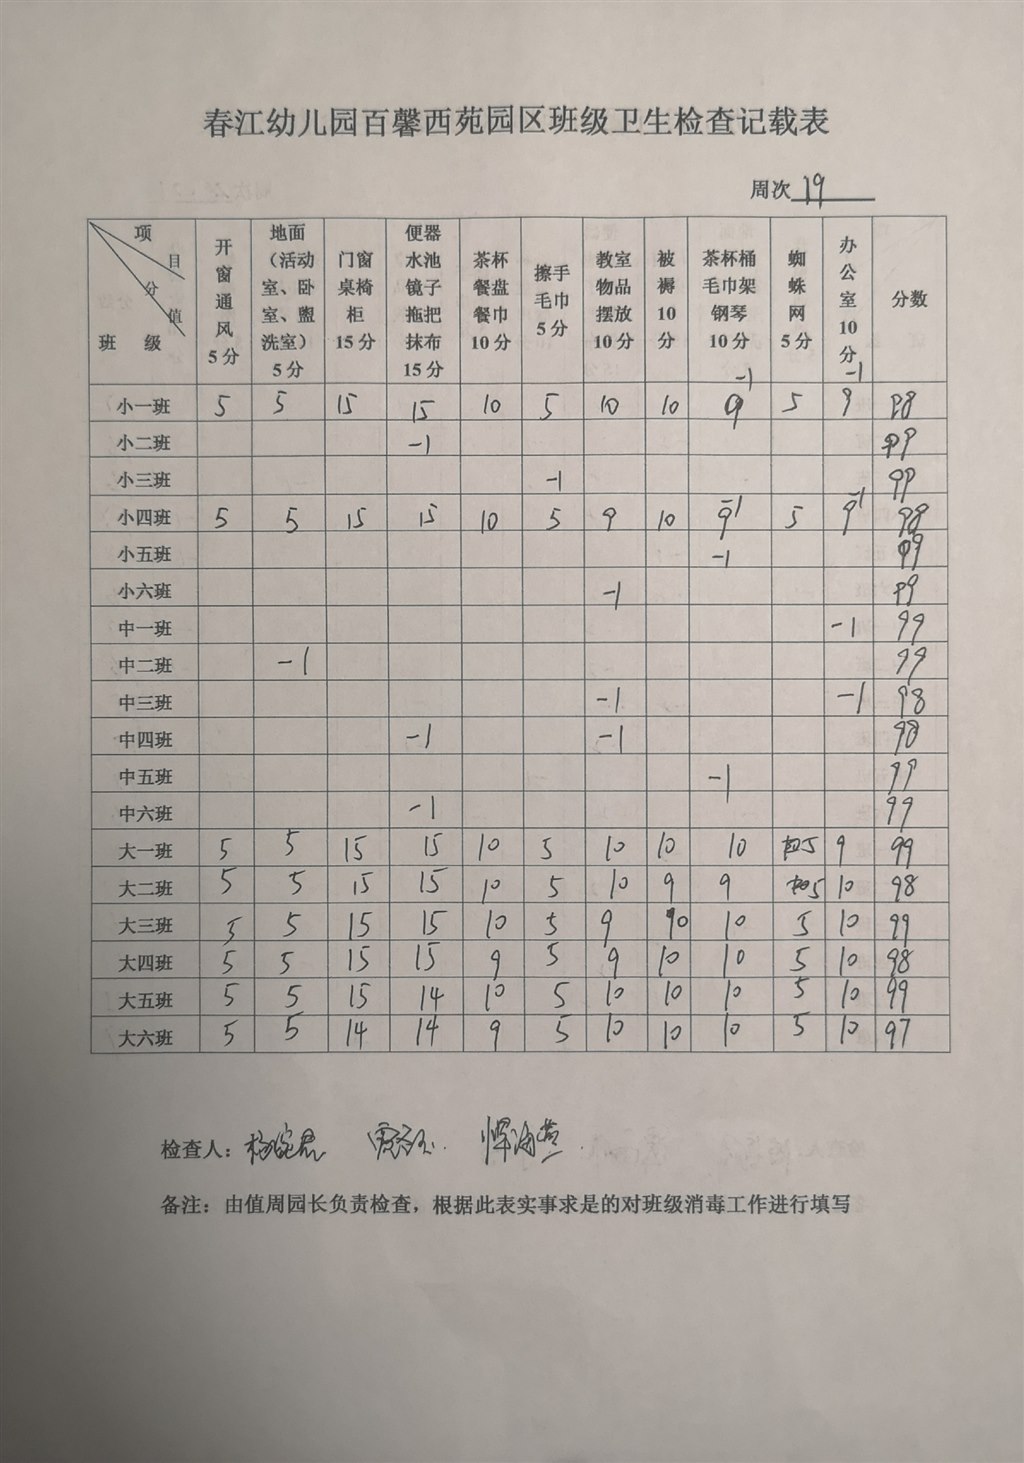 春江幼儿园百馨西苑园区班级卫生检查记载表
周次 19
项目 分值 班级 开窗通风5分 地面（活动室、卧室、盥洗室）5分 门窗桌椅柜15分 便器水池镜子拖把抹布15分 茶杯餐盘餐巾10分 擦手毛巾5分 教室物品摆放10分 被褥10分 茶杯桶毛巾架钢琴10分 蜘蛛网5分 办公室10分 分数
-1 -1
小一班 5 5 15 15 10 5 10 10 9 5 9 98
小二班 -1 99
小三班 -1 99
小四班 5 5 15 15 10 5 9 10 9 -1 5 9 -1 98
小五班 -1 99
小六班 -1 99
中一班 -1 99
中二班 -1 99
中三班 -1 -1 98
中四班 -1 -1 98
中五班 -1 99
中六班 -1 99
大一班 5 5 15 15 10 5 10 10 10 5 9 99
大二班 5 5 15 15 10 5 10 9 9 5 10 98
大三班 5 5 15 15 10 5 9 10 10 5 10 99
大四班 5 5 15 15 9 5 9 10 10 5 10 98
大五班 5 5 15 14 10 5 10 10 10 5 10 99
大六班 5 5 14 14 9 5 10 10 10 5 10 97
检查人： 恽海燕
备注：由值周园长负责检查，根据此表实事求是的对班级消毒工作进行填写